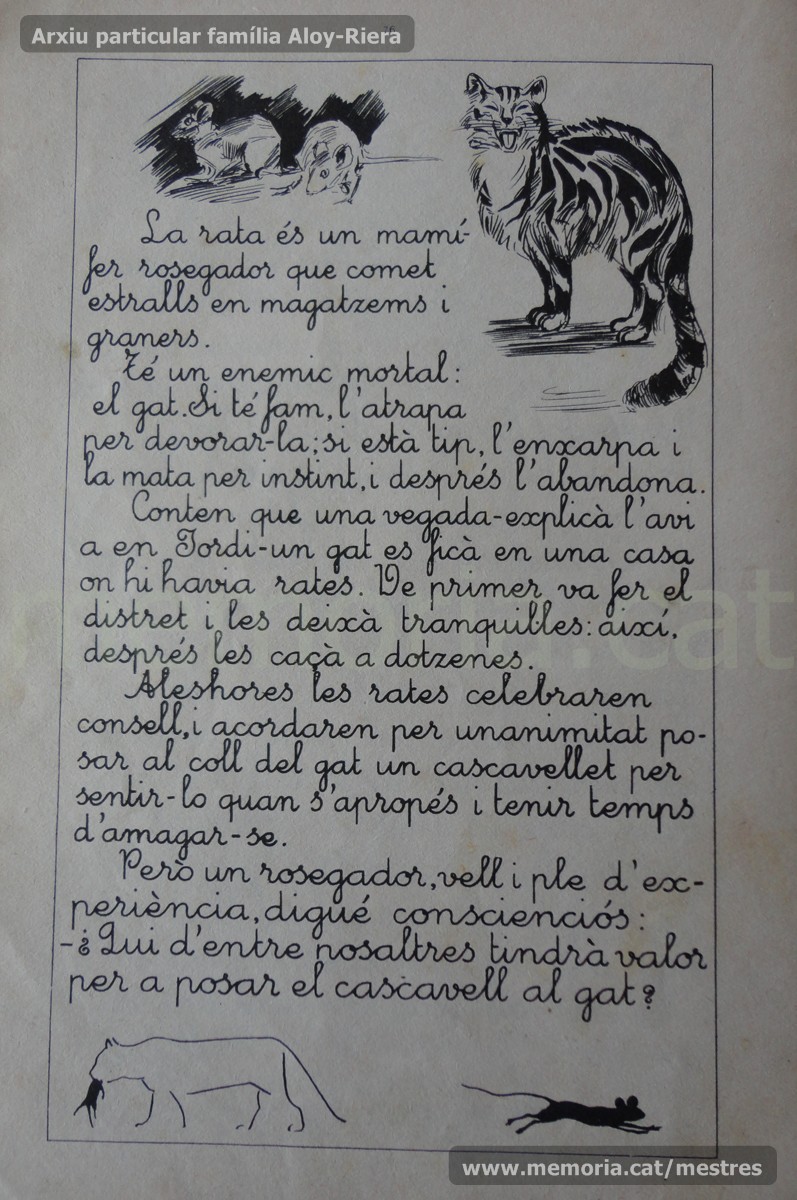 Arxiu particular família Aloy-Riera
La rata és un mamí-
fer rosegador que comet
estralls en magatzems i
graners.
Té un enemic mortal:
el gat. Si té fam, l'atrapa
per devorar-la; si està tip, l'enxarpa i
la mata per instint, i després l'abandona.
Conten que una vegada-explicà l'avi
a en Jordi-un gat es ficà en una casa
on hi havia rates. De primer va fer el
distret i les deixà tranquil·les: així,
després les caçà a dotzenes.
Aleshores les rates celebraren
consell, i acordaren per unanimitat po-
sar al coll del gat un cascavellet per
sentir-lo quan s'apropés i tenir temps
d'amagar-se.
Però un rosegador, vell i ple d'ex-
periència, digué conscienciós:
-¿Qui d'entre nosaltres tindrà valor
per a posar el cascavell al gat?
www.memoria.cat/mestres